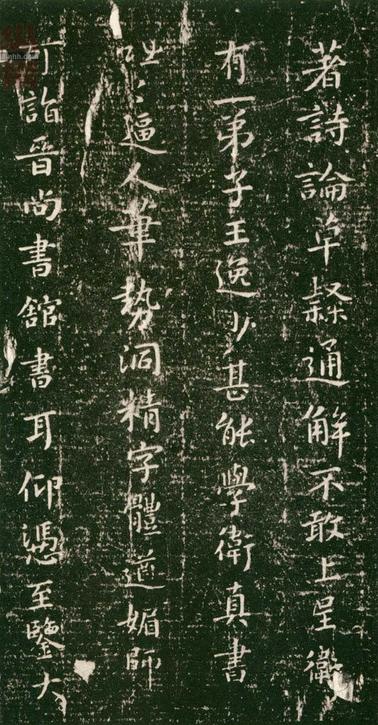 著詩論草隸通解不敢上呈衛
有一弟子王逸少甚能學衛真書
咄咄逼人筆勢洞精字體遒媚師
可詣晉尚書館書耳仰憑至鑒大